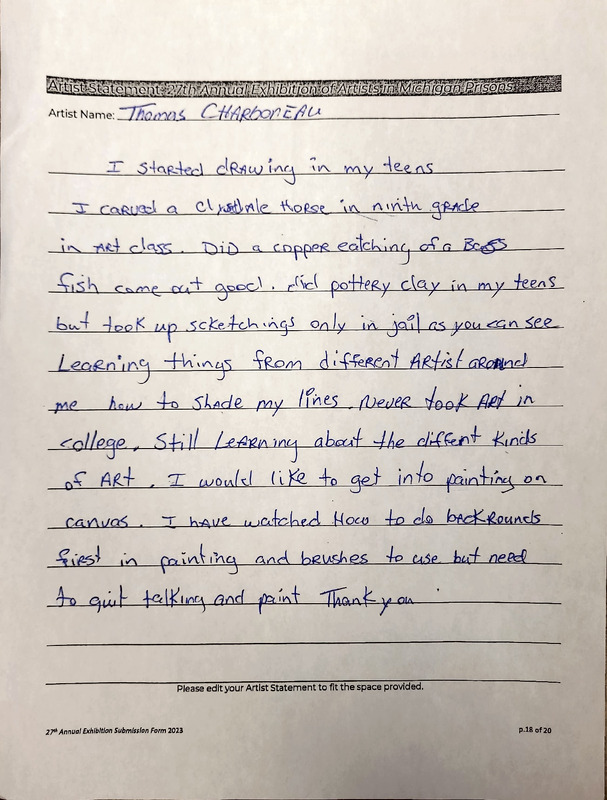 Artist Statement: 27th Annual Exhibition of Artists in Michigan Prisons
Artist Name: Thomas CHARBONEAU
I started drawing in my teens
I carved a horse in ninth grade
in Art class. Did a copper eatching of a Bass
fish came out good. did pottery clay in my teens
but took up scketchings only in jail as you can see
Learning things from different Artist around
me how to shade my lines. Never took Art in
college. Still Learning about the differt kinds
of Art. I would like to get into painting on
canvas. I have watched How to do backrounds
first in painting and brushes to use but need
to quit talking and paint Thank you
Please edit your Artist Statement to fit the space provided.
27th Annual Exhibition Submission Form 2023
p.18 of 20